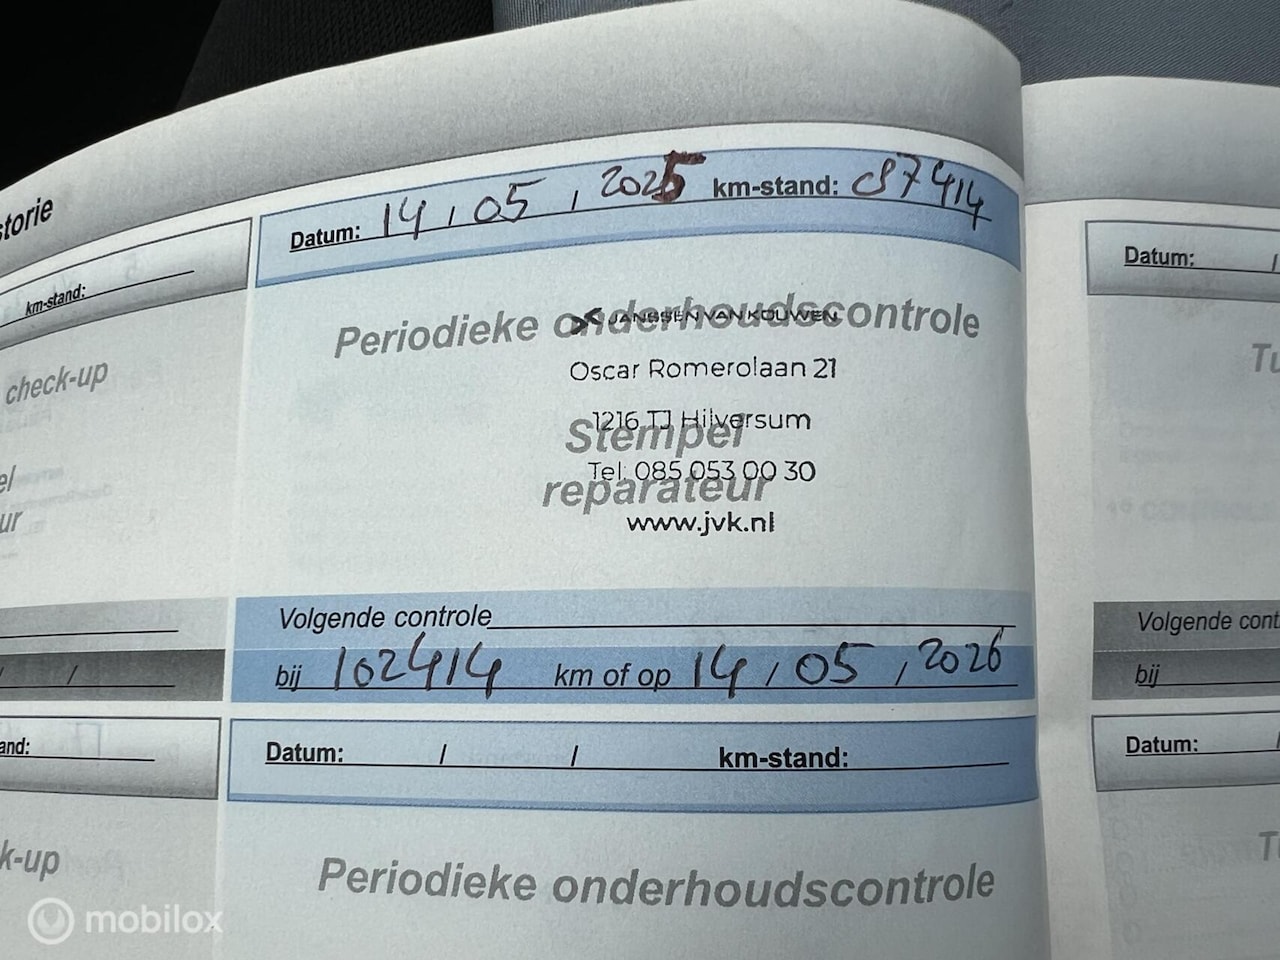 storie
km-stand:
check-up
Datum: 14 / 05 / 2025 km-stand: 87414
Periodieke onderhoudscontrole
JANSSEN VAN KOUWEN
Oscar Romerolaan 21
1216 TJ Hilversum
Stempel
Tel: 085 053 00 30
reparateur
www.jvk.nl
Volgende controle
bij 102414 km of op 14 / 05 / 2026
Datum: / / km-stand:
Periodieke onderhoudscontrole
and:
k-up
Datum: /
Tu
Volgende cont
bij
Datum: /
T
mobilox